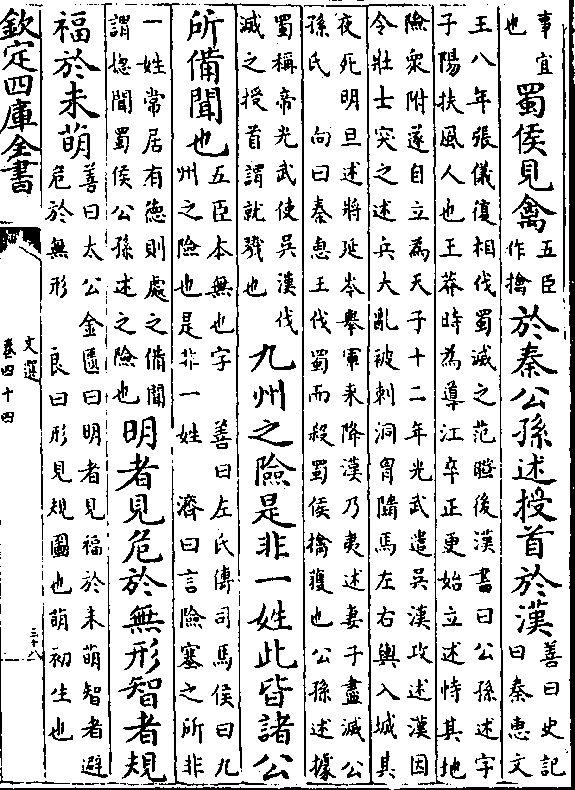 事宜
也
蜀侯見禽
五臣
作擒
於秦公孫述授首於漢
善曰史記
曰秦惠文
王八年張儀復相伐蜀滅之范曄後漢書曰公孫述字
子陽扶風人也王莽時為導江卒正更始立述恃其地
險衆附遂自立為天子十二年光武遣吳漢攻述漢因
令壯士突之述兵大亂被刺洞胷墮馬左右輿入城其
夜死明旦述將延岑舉軍来降漢乃夷述妻子盡滅公
孫氏　向曰秦惠王伐蜀而殺蜀侯擒獲也公孫述據
蜀稱帝光武使吳漢伐
滅之授首謂就戮也
九州之險是非一姓此皆諸公
所備聞也
五臣本無也字　善曰左氏傳司馬侯曰九
州之險也是非一姓　濟曰言險塞之所非
一姓常居有德則處之備聞
謂揔聞蜀侯公孫述之險也
明者見危於無形智者規
福於未萌
善曰太公金匱曰明者見福於未萌智者避
危於無形　良曰形見規圖也萌初生也
欽定四庫全書
文選
卷四十四
三十八